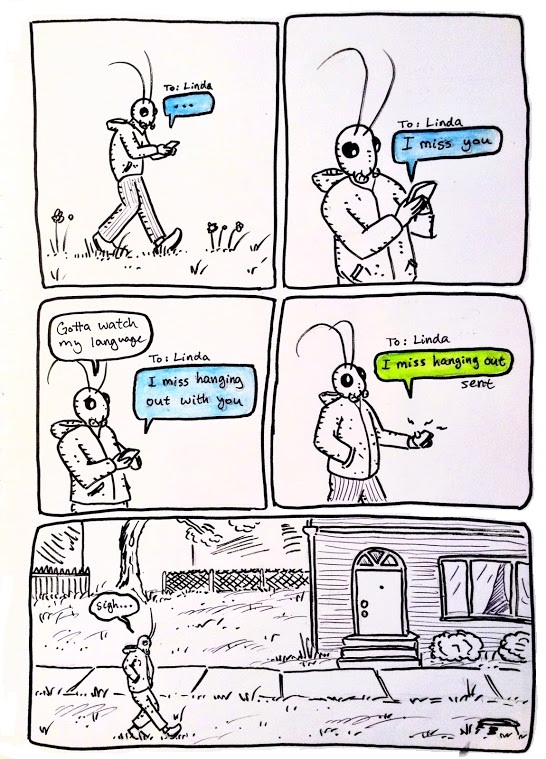 To: Linda
...
To: Linda
I miss you
Gotta watch
my language
To: Linda
I miss hanging
out with you
To: Linda
I miss hanging out
sent
sigh...